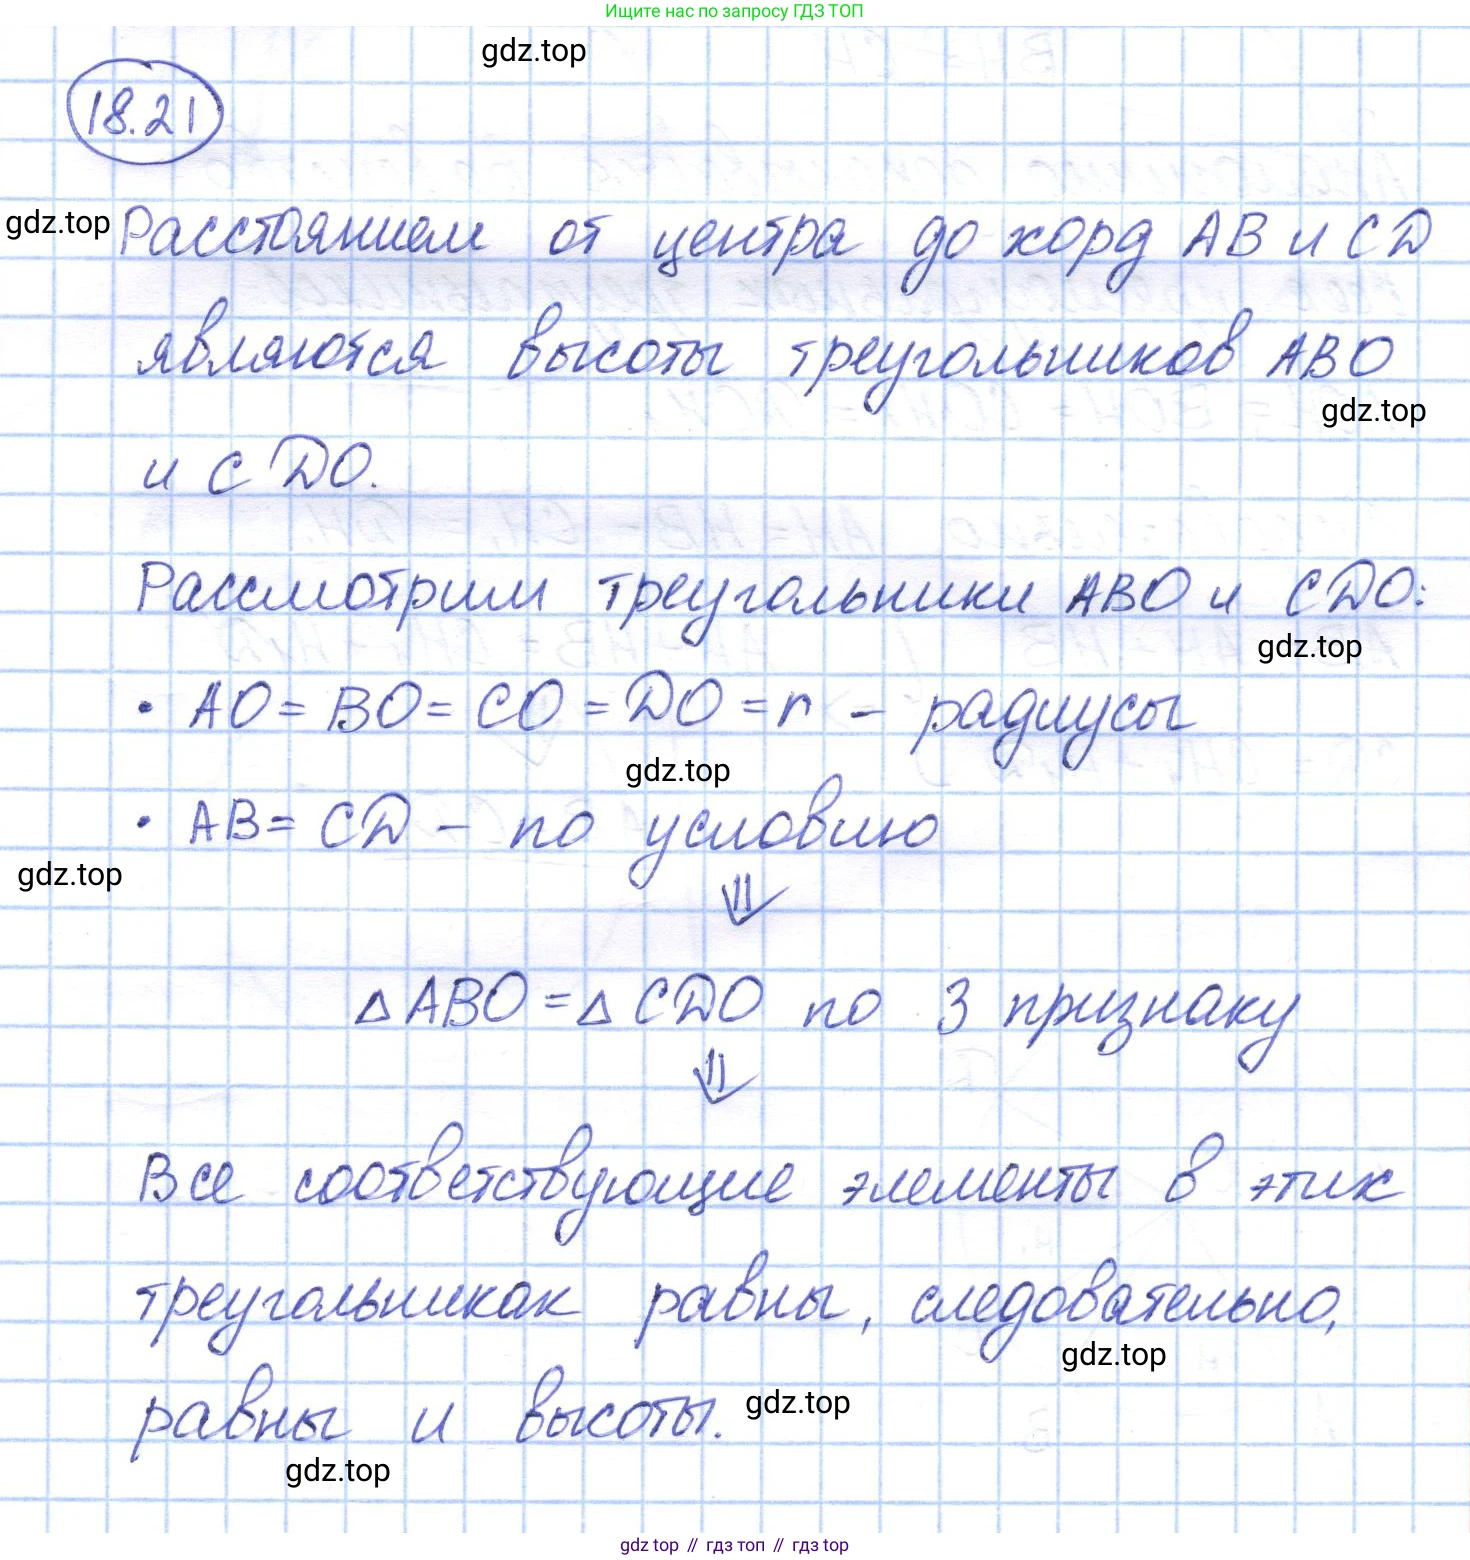 Ищите нас по запросу ГДЗ ТОП
gdz.top
18.21
gdz.top
Расстоянием от центра до хорд AB и CD
являются высоты треугольников ABO
gdz.top
и CDO.
Рассмотрим треугольники ABO и CDO:
gdz.top
• AO = BO = CO = DO = r – радиусы
gdz.top
• AB = CD – по условию
gdz.top
⇓
△ ABO = △ CDO по 3 признаку
⇓
Все соответствующие элементы в этих
треугольниках равны, следовательно,
gdz.top
равны и высоты.
gdz.top
gdz.top
gdz top // гдз топ // гдз top